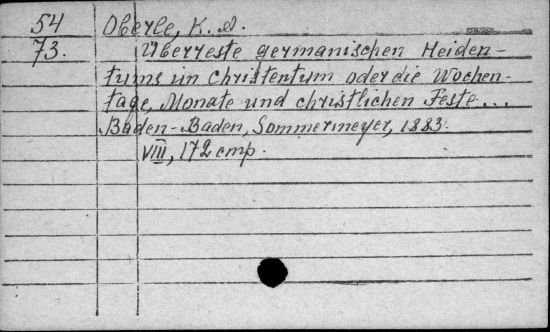 54 Oberle, K. A.
73. Überreste germanischen Heiden-
tums im Christentum oder die Wochen-
tage, Monate und christlichen Feste...
Baden-Baden, Sommermeyer, 1883.
VIII, 172 стр.